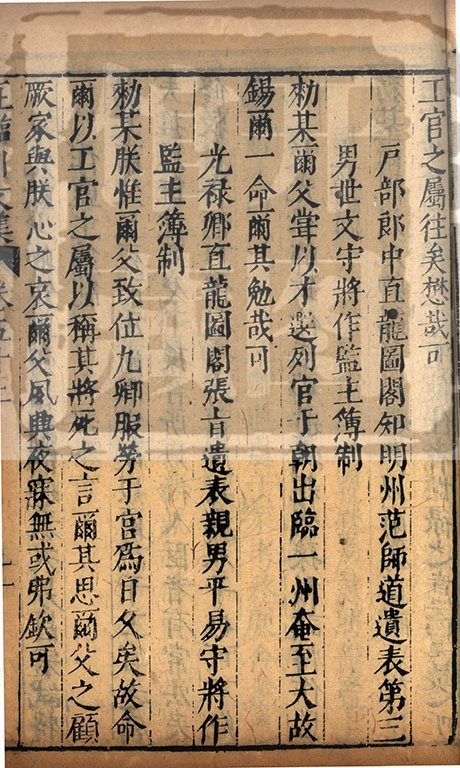 工官之屬往矣懋哉可
戶部郎中直龍圖閣知明州范師道遺表第三
男世文守將作監主簿制
勑某爾父甞以才選列官于朝出臨一州奄至大故
錫爾一命爾其勉哉可
光禄卿直龍圖閣張旨遺表親男平易守將作
監主簿制
勑某朕惟爾父致位九卿服勞于官爲日久矣故命
爾以工官之屬以稱其將死之言爾其思爾父之顧
厥家與朕心之哀爾父夙興夜寐無或弗欽可
王臨川文集 卷五十三